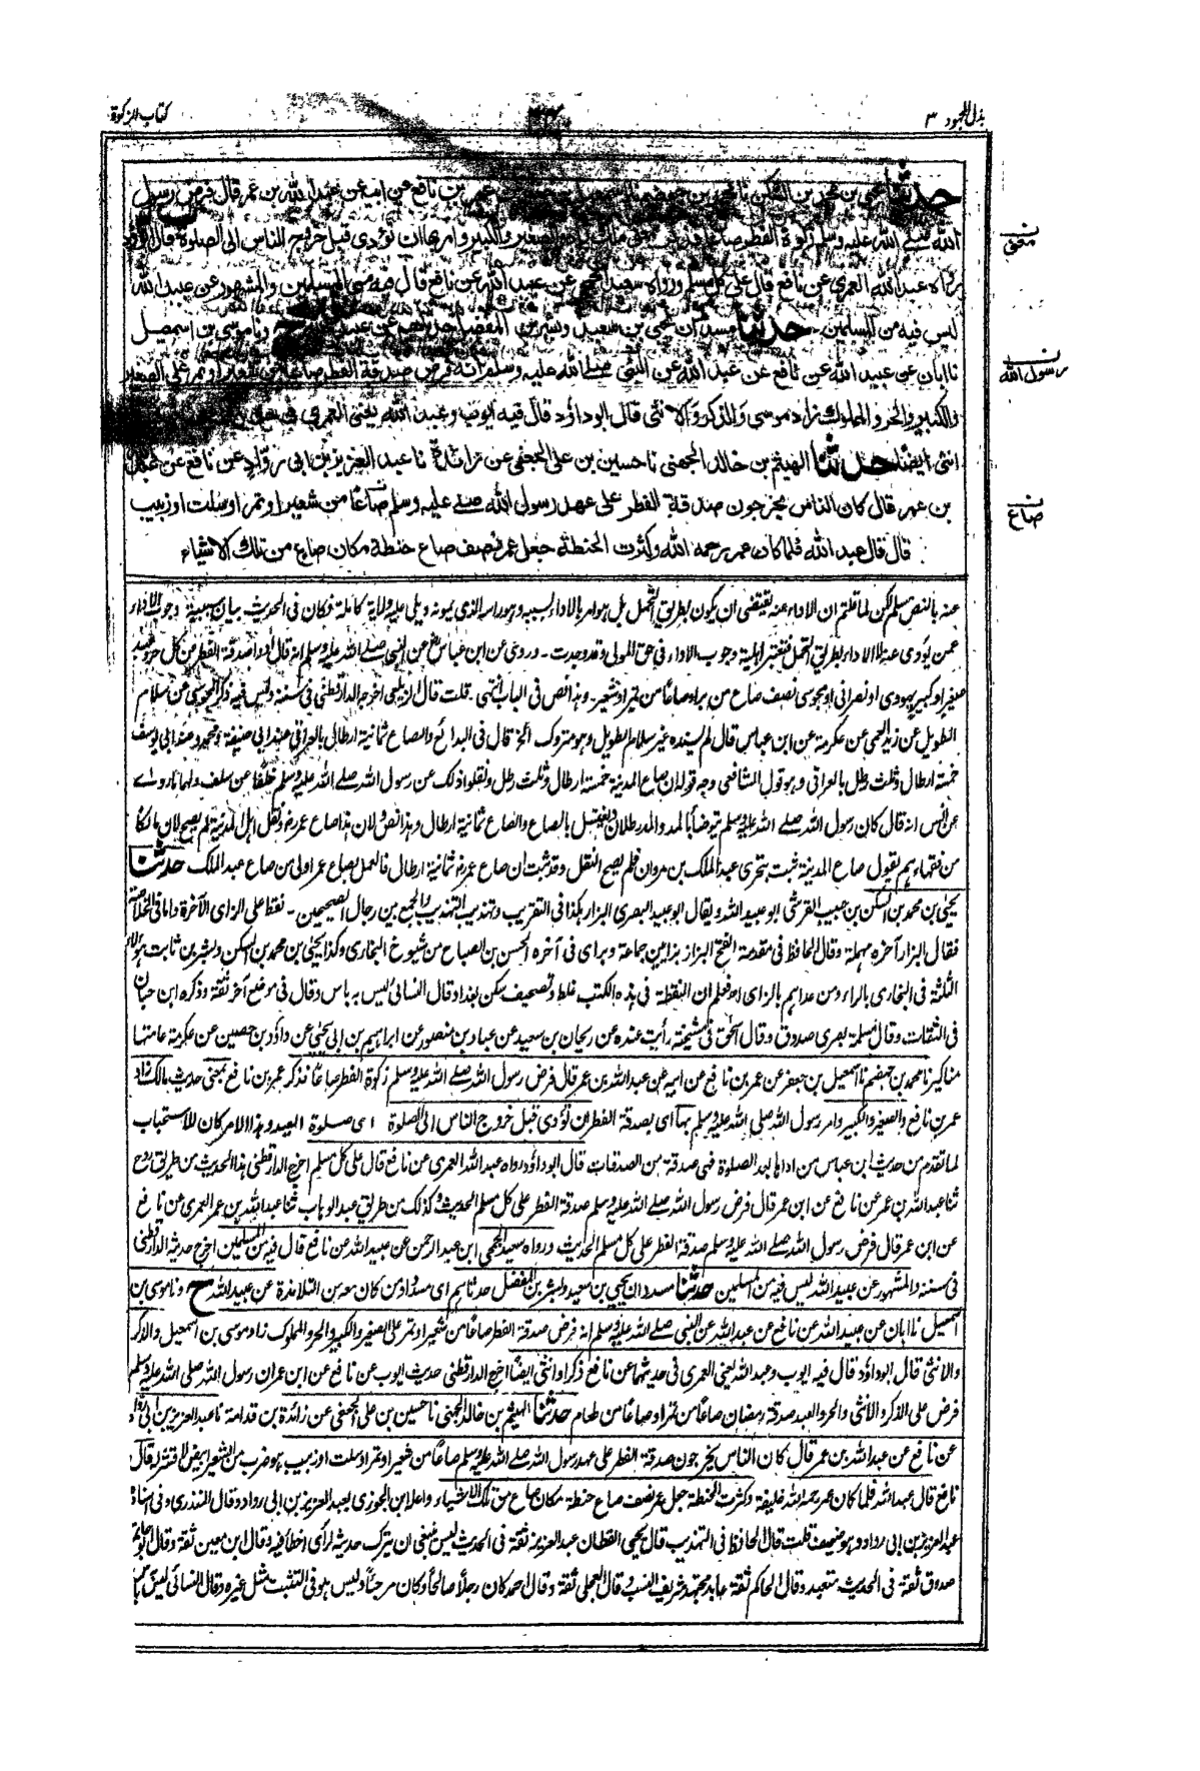 بذل المجهود ٣
كتاب الزكوة
حدثنا يحيى بن محمد بن السكن نا محمد بن جهضم نا اسمعيل بن جعفر عن عمر بن نافع عن ابيه عن عبد الله بن عمر قال فرض رسول
الله صلے الله عليه وسلم زكوة الفطر صاعا فذكر بمعنى مالك زاد والصغير والكبير وامر بها ان تؤدى قبل خروج الناس الى الصلوة قال ابوداود
رواه عبد الله العمري عن نافع قال على كل مسلم ورواه سعيد الجمحي عن عبيد الله عن نافع قال فيه من المسلمين والمشهور عن عبيد الله
ليس فيه من المسلمين حدثنا مسدد ان يحيى بن سعيد وبشر بن المفضل حدثاهم عن عبيد الله ح ونا موسى بن اسمعيل
نا ابان عن عبيد الله عن نافع عن عبد الله عن النبي صلے الله عليه وسلم انه فرض صدقة الفطر صاعا من شعير او تمر على الصغير
والكبير والحر والمملوك زاد موسى والذكر والانثى قال ابو داؤد قال فيه ايوب وعبد الله يعنى العمري في
انثى ايضا حدثنا الهيثم بن خالد الجهني نا حسين بن على الجعفي عن زائدة نا عبد العزيز بن ابى رواد عن نافع عن عبد الله
بن عمر قال كان الناس يخرجون صدقة الفطر على عهد رسول الله صلے الله عليه وسلم صاعا من شعير او تمر او سلت او زبيب
قال قال عبد الله فلما كان عمر رحمه الله وكثرت الحنطة جعل عمر نصف صاع حنطة مكان صاع من تلك الاشياء
ن
ن
رسول الله
ن
صاع
عنه بالنص مسلم لكن لم قلتم ان الاداء عنه يقتضى ان يكون بطريق التحمل بل هو امر بالاداء بسببه وهو راسه الذى يمونه ويلى عليه ولاية كاملة فكان فى الحديث بيان سببية وجوب الاداء
عمن يؤدى عنه لا الاداء بطريق التحمل فتعتبر اهلية وجوب الاداء فى حق المولى وقد وجدت - وروى عن ابن عباس عن النبى صلے الله عليه وسلم انه قال ادوا صدقة الفطر من كل حر وعبد
صغير او كبير يهودى او نصرانى او مجوسى نصف صاع من بر او صاعا من تمر او شعير - وهذا نص فى الباب انتهى - قلت قال الزيلعى اخرجه الدارقطنى فى سننه وليس فيه ذكر المجوسى عن سلام
الطويل عن زيد العمى عن عكرمة عن ابن عباس قال لم يسنده غير سلام الطويل وهو متروك الخ قال فى البدائع والصاع ثمانية ارطال بالعراقى عند ابى حنيفة ومحمد وعند ابى يوسف
خمسة ارطال وثلث رطل بالعراقى وهو قول الشافعى وجه قوله ان صاع المدينة خمسة ارطال وثلث رطل ونقلوا ذلك عن رسول الله صلے الله عليه وسلم خلفا عن سلف ولهما ما روے
عن انس انه قال كان رسول الله صلے الله عليه وسلم يتوضأ بالمد والمد رطلان ويغتسل بالصاع والصاع ثمانية ارطال وهذا نص ولان هذا صاع عمر ونقل اهل المدينة لم يصح لان مالكا
من فقهاءهم يقول صاع المدينة ثبت بتحرى عبد الملك بن مروان فلم يصح النقل وقد ثبت ان صاع عمر ثمانية ارطال فالعمل بصاع عمر اولى من صاع عبد الملك حدثنا
يحيى بن محمد بن السكن بن حبيب القرشى ابو عبيد الله ويقال ابو عبيد البصرى البزار هكذا فى التقريب وتهذيب التهذيب والجمع بين رجال الصحيحين - نقط على الزاى الآخرة واما فى الخلاصة
فقال البزار آخره مهملة وقال الحافظ فى مقدمة الفتح البزاز بزايين جماعة وبراى فى آخره الحسن بن الصباح من شيوخ البخارى وكذا يحيى بن محمد بن السكن وبشر بن ثابت هؤلاء
الثلثة فى البخارى بالراء ومن عداهم بالزاى اه فعلم ان النقطة فى هذه الكتب غلط وتصحيف سكن بغداد قال النسائى ليس به باس وقال فى موضع آخر ثقة وذكره ابن حبان
فى الثقات وقال مسلمة بصرى صدوق وقال اسحق فى مشيخته رأيت عنده عن ريحان بن سعيد عن عباد بن منصور عن ابراهيم بن ابى يحيى عن داؤد بن حصين عن عكرمة عامتها
مناكير نا محمد بن جهضم نا اسمعيل بن جعفر عن عمر بن نافع عن ابيه عن عبد الله بن عمر قال فرض رسول الله صلے الله عليه وسلم زكوة الفطر صاعا فذكر عمر بن نافع بمعنى حديث مالك زاد
عمر بن نافع والصغير والكبير وامر رسول الله صلى الله عليه وسلم بها اى بصدقة الفطر ان تؤدى قبل خروج الناس الى الصلوة اى صلوة العيد وهذا الامر كان للاستحباب
لما تقدم من حديث ابن عباس من اداها بعد الصلوة فهى صدقة من الصدقات قال ابو داؤد رواه عبد الله العمرى عن نافع قال على كل مسلم اخرج الدارقطنى هذا الحديث من طريق روح
ثنا عبد الله بن عمر عن نافع عن ابن عمر قال فرض رسول الله صلے الله عليه وسلم صدقة الفطر على كل مسلم الحديث وكذلك من طريق عبد الوهاب ثنا عبد الله بن عمر العمرى عن نافع
عن ابن عمر قال فرض رسول الله صلے الله عليه وسلم صدقة الفطر على كل مسلم الحديث ورواه سعيد الجمحى ابن عبد الرحمن عن عبيد الله عن نافع قال فيه من المسلمين اخرج حديثه الدارقطنى
فى سننه والمشهور عن عبيد الله ليس فيه من المسلمين حدثنا مسدد ان يحيى بن سعيد وبشر بن المفضل حدثاهم اى مسددا ومن كان معه من التلامذة عن عبيد الله ح ونا موسى بن
اسمعيل نا ابان عن عبيد الله عن نافع عن عبد الله عن النبى صلے الله عليه وسلم انه فرض صدقة الفطر صاعا من شعير او تمر على الصغير والكبير والحر والمملوك زاد موسى بن اسمعيل والذكر
والانثى قال ابو داؤد قال فيه ايوب وعبد الله يعنى العمرى فى حديثهما عن نافع ذكر او انثى ايضا اخرج الدارقطنى حديث ايوب عن نافع عن ابن عمر ان رسول الله صلى الله عليه وسلم
فرض على الذكر والانثى والحر والعبد صدقة رمضان صاعا من تمر او صاعا من طعام حدثنا الهيثم بن خالد الجهنى نا حسين بن على الجعفى عن زائدة بن قدامة نا عبد العزيز بن ابى رواد
عن نافع عن عبد الله بن عمر قال كان الناس يخرجون صدقة الفطر على عهد رسول الله صلے الله عليه وسلم صاعا من شعير او تمر او سلت او زبيب هو ضرب من الشعير ابيض لا قشر له قال
نافع قال عبد الله فلما كان عمر رحمه الله خليفة وكثرت الحنطة جعل عمر نصف صاع حنطة مكان صاع من تلك الاشياء واعله ابن الجوزى بعبد العزيز بن ابى رواد وقال المنذرى وفى اسناده
عبد العزيز بن ابى رواد وهو ضعيف قلت قال الحافظ فى التهذيب قال يحيى القطان عبد العزيز ثقة فى الحديث ليس ينبغى ان يترك حديثه لرأى اخطأ فيه وقال ابن معين ثقة وقال ابو حاتم
صدوق ثقة فى الحديث متعبد وقال الحاكم ثقة عابد مجتهد شريف النسب وقال العجلى ثقة وقال احمد كان رجلا صالحا وكان مرجئا وليس هو فى التثبت مثل غيره وقال النسائى ليس به